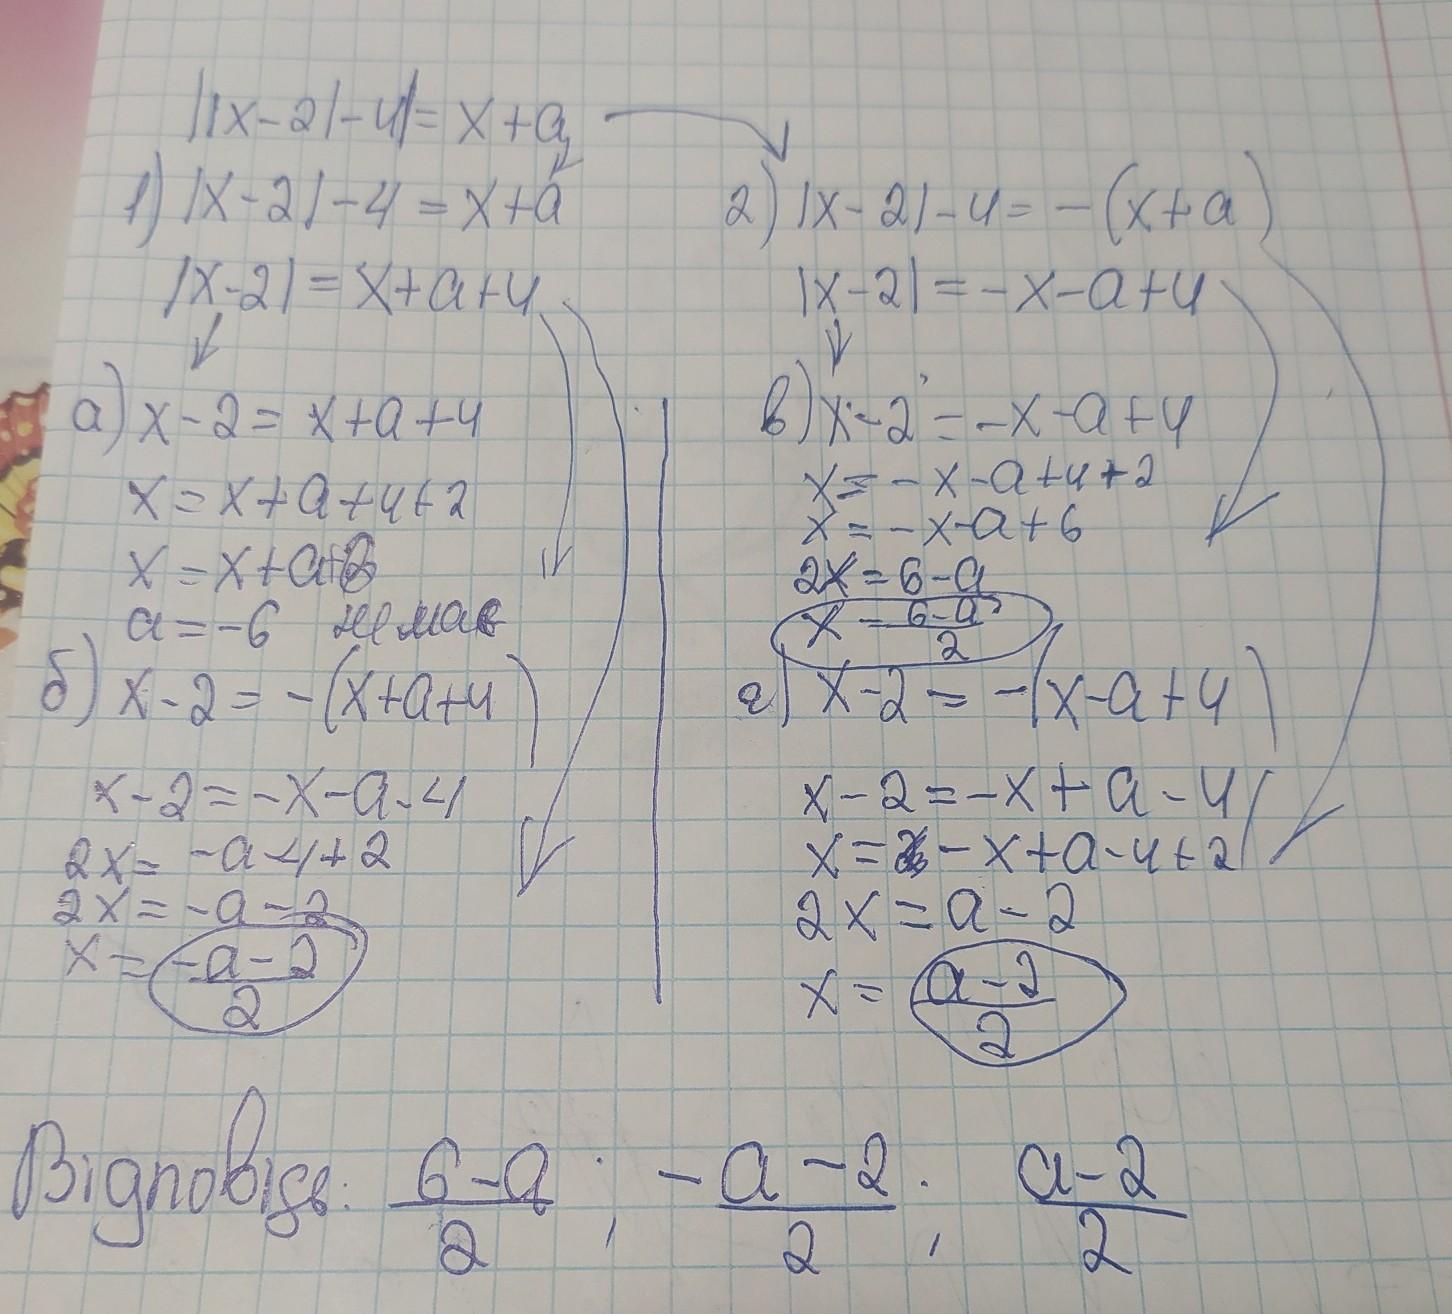 ||x-2|-4|=x+a
1) |x-2|-4=x+a
|x-2|=x+a+4
а) x-2=x+a+4
x=x+a+4+2
x=x+a+6
a=-6 немає
б) x-2=-(x+a+4)
x-2=-x-a-4
2x=-a-4+2
2x=-a-2
x=\frac{-a-2}{2}
2) |x-2|-4=-(x+a)
|x-2|=-x-a+4
в) x-2=-x-a+4
x=-x-a+4+2
x=-x-a+6
2x=6-a
x=\frac{6-a}{2}
г) x-2=-(x-a+4)
x-2=-x+a-4
x=-x+a-4+2
2x=a-2
x=\frac{a-2}{2}
Відповідь: \frac{6-a}{2}; \frac{-a-2}{2}; \frac{a-2}{2}